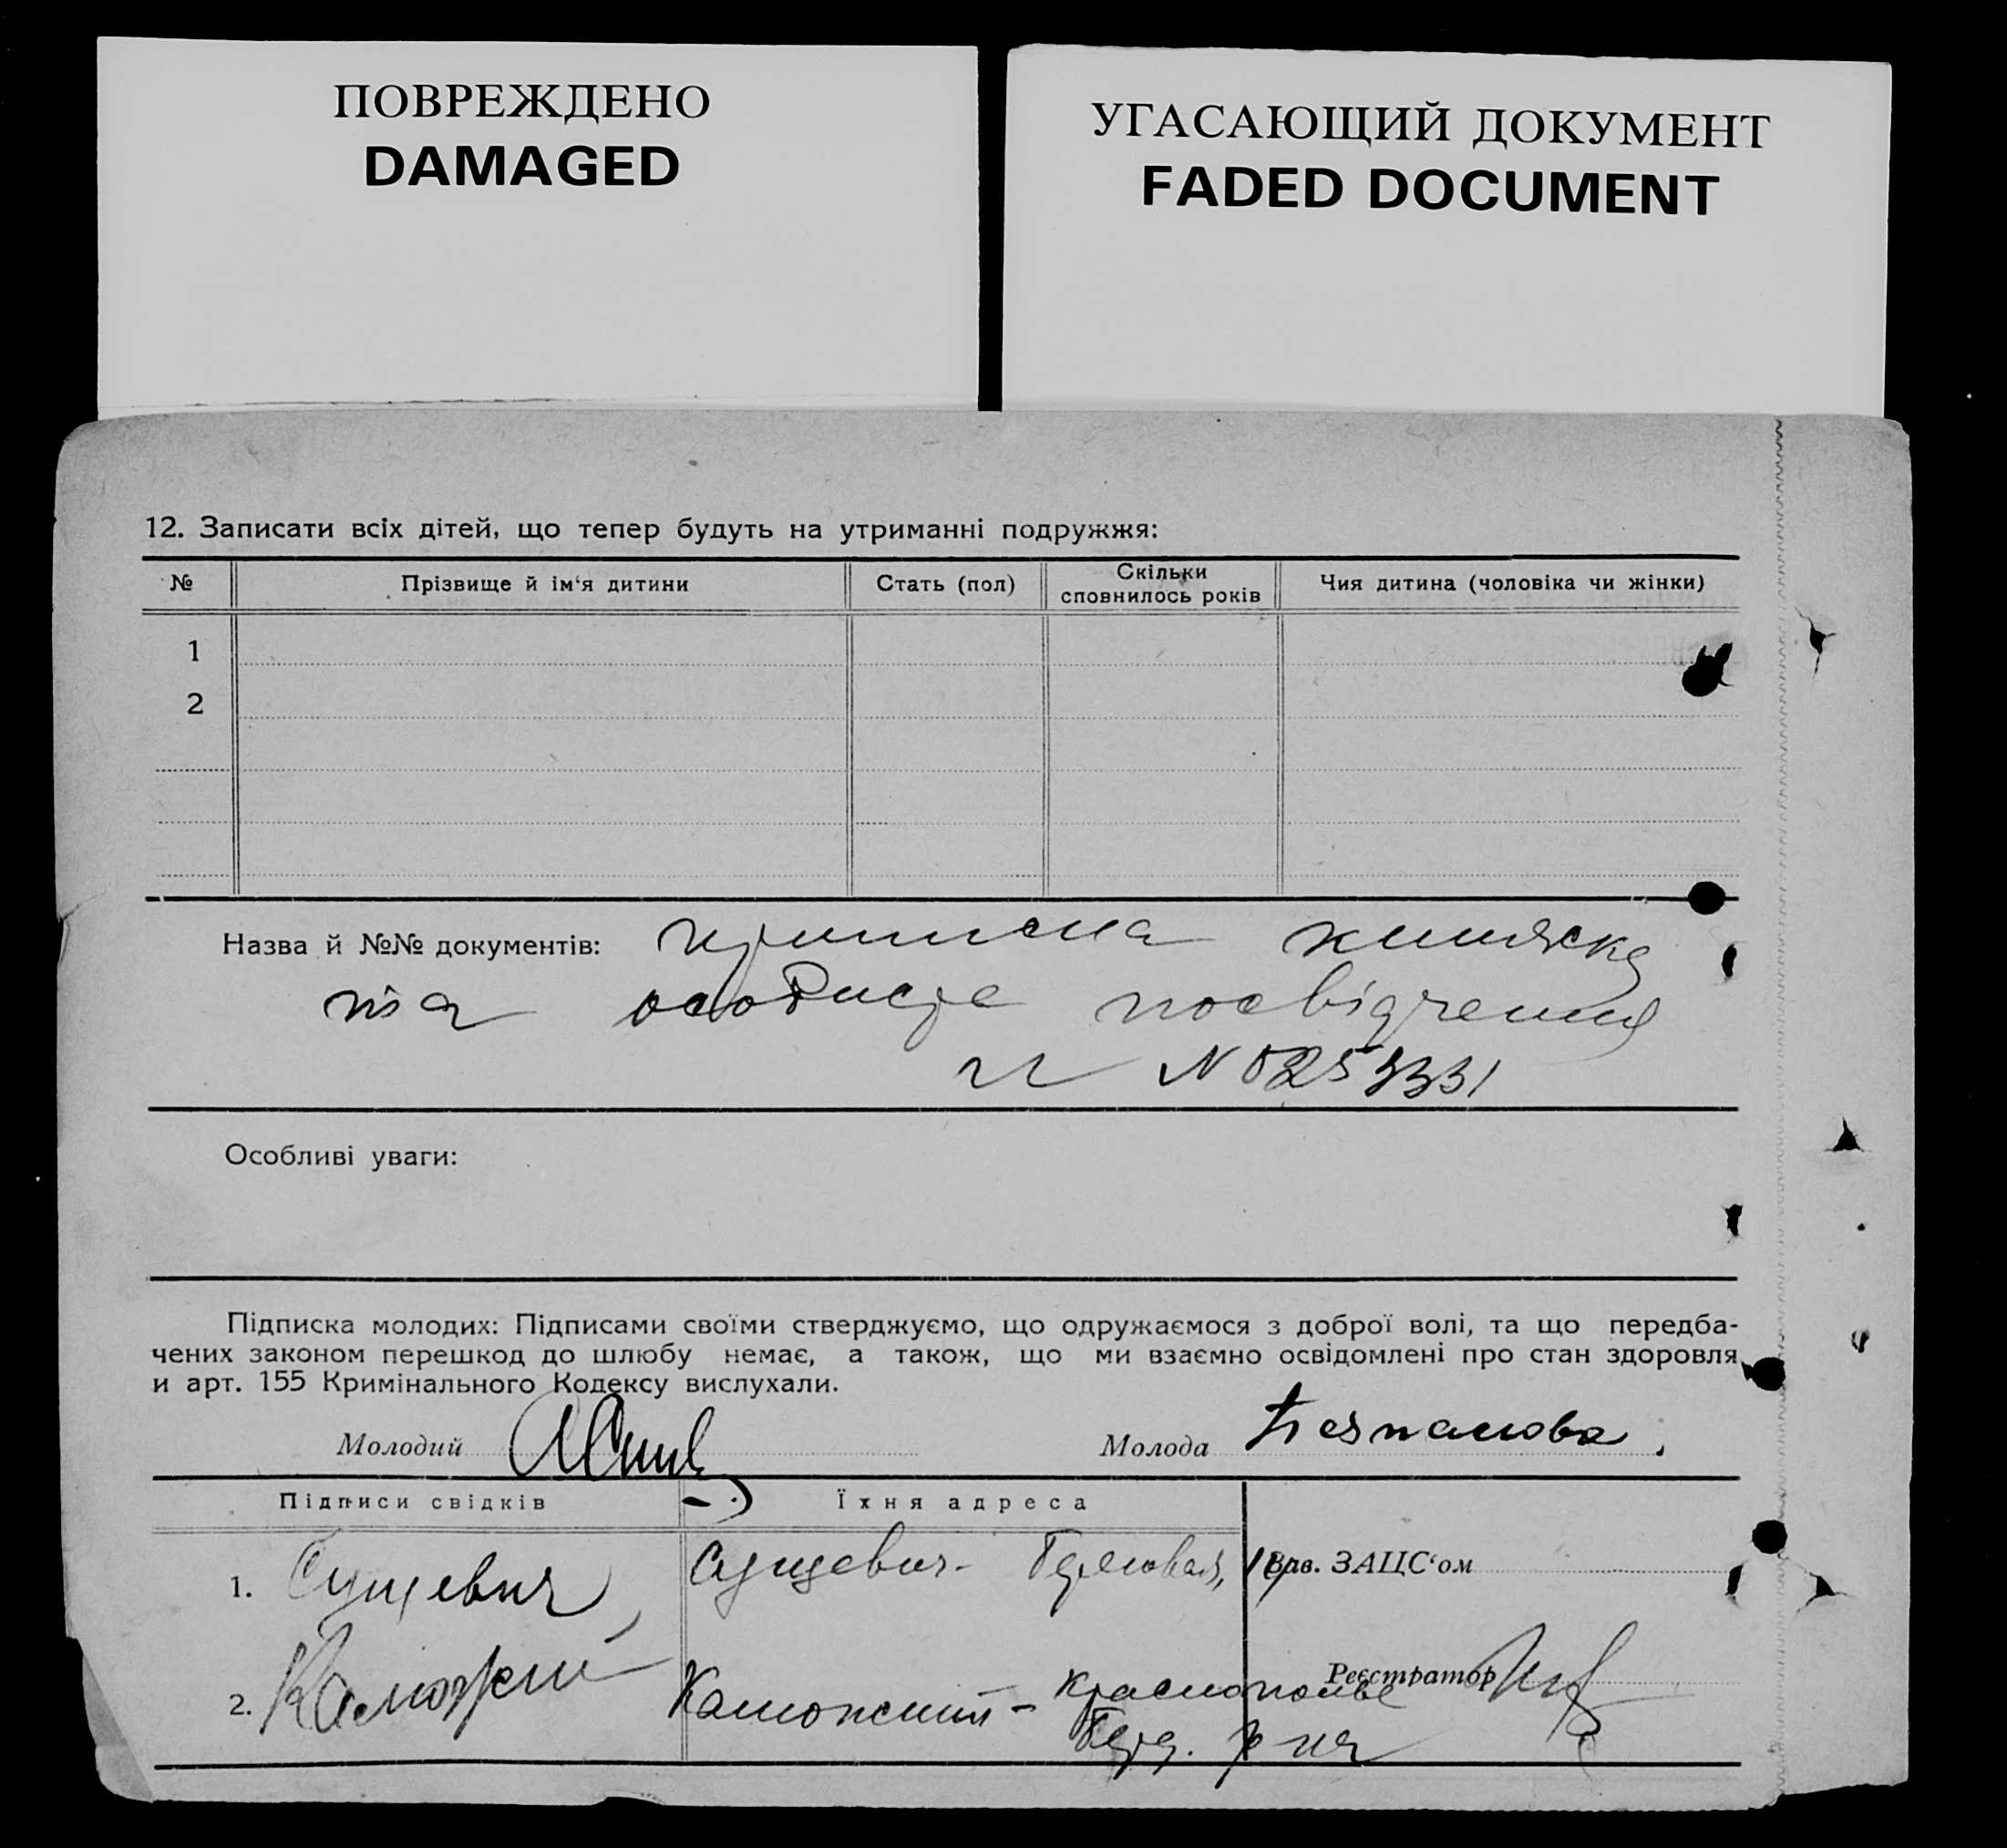 ПОВРЕЖДЕНО
DAMAGED
УГАСАЮЩИЙ ДОКУМЕНТ
FADED DOCUMENT
12. Записати всіх дітей, що тепер будуть на утриманні подружжя:
№ Прізвище й ім‘я дитини Стать (пол) Скільки сповнилось років Чия дитина (чоловіка чи жінки)
1
2
Назва й №№ документів: приписна книжка
та особисте посвідчення
N 5253331
Особливі уваги:
Підписка молодих: Підписами своїми стверджуємо, що одружаємося з доброї волі, та що передба-
чених законом перешкод до шлюбу немає, а також, що ми взаємно освідомлені про стан здоровля
и арт. 155 Кримінального Кодексу вислухали.
Молодий Молода
Підписи свідків Їхня адреса
1. Сущевич Сущевич - Зав. ЗАЦС‘ом
2. Красмополье Реєстратор
Берд. р-на